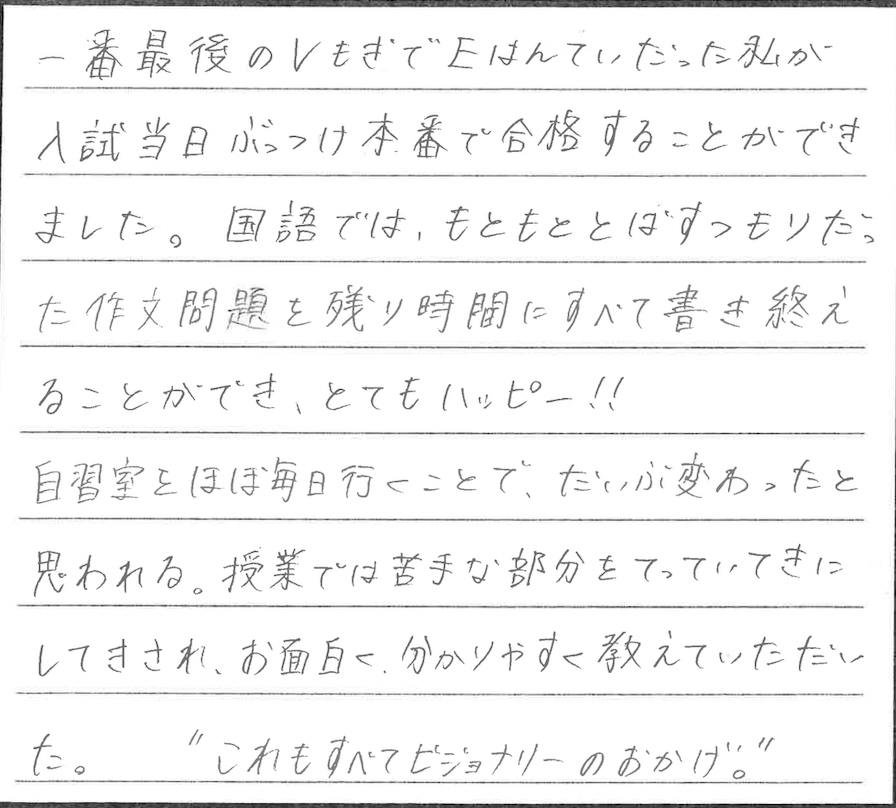 一番最後のVもぎでEはんていだった私が
入試当日ぶっつけ本番で合格することができ
ました。国語では、もともととばすつもりだっ
た作文問題を残り時間にすべて書き終え
ることができ、とてもハッピー!!
自習室をほぼ毎日行くことで、だいぶ変わったと
思われる。授業では苦手な部分をてっていてきに
してきされ、お面白く、分かりやすく教えていただい
た。 "これもすべてビジョナリーのおかげ。"